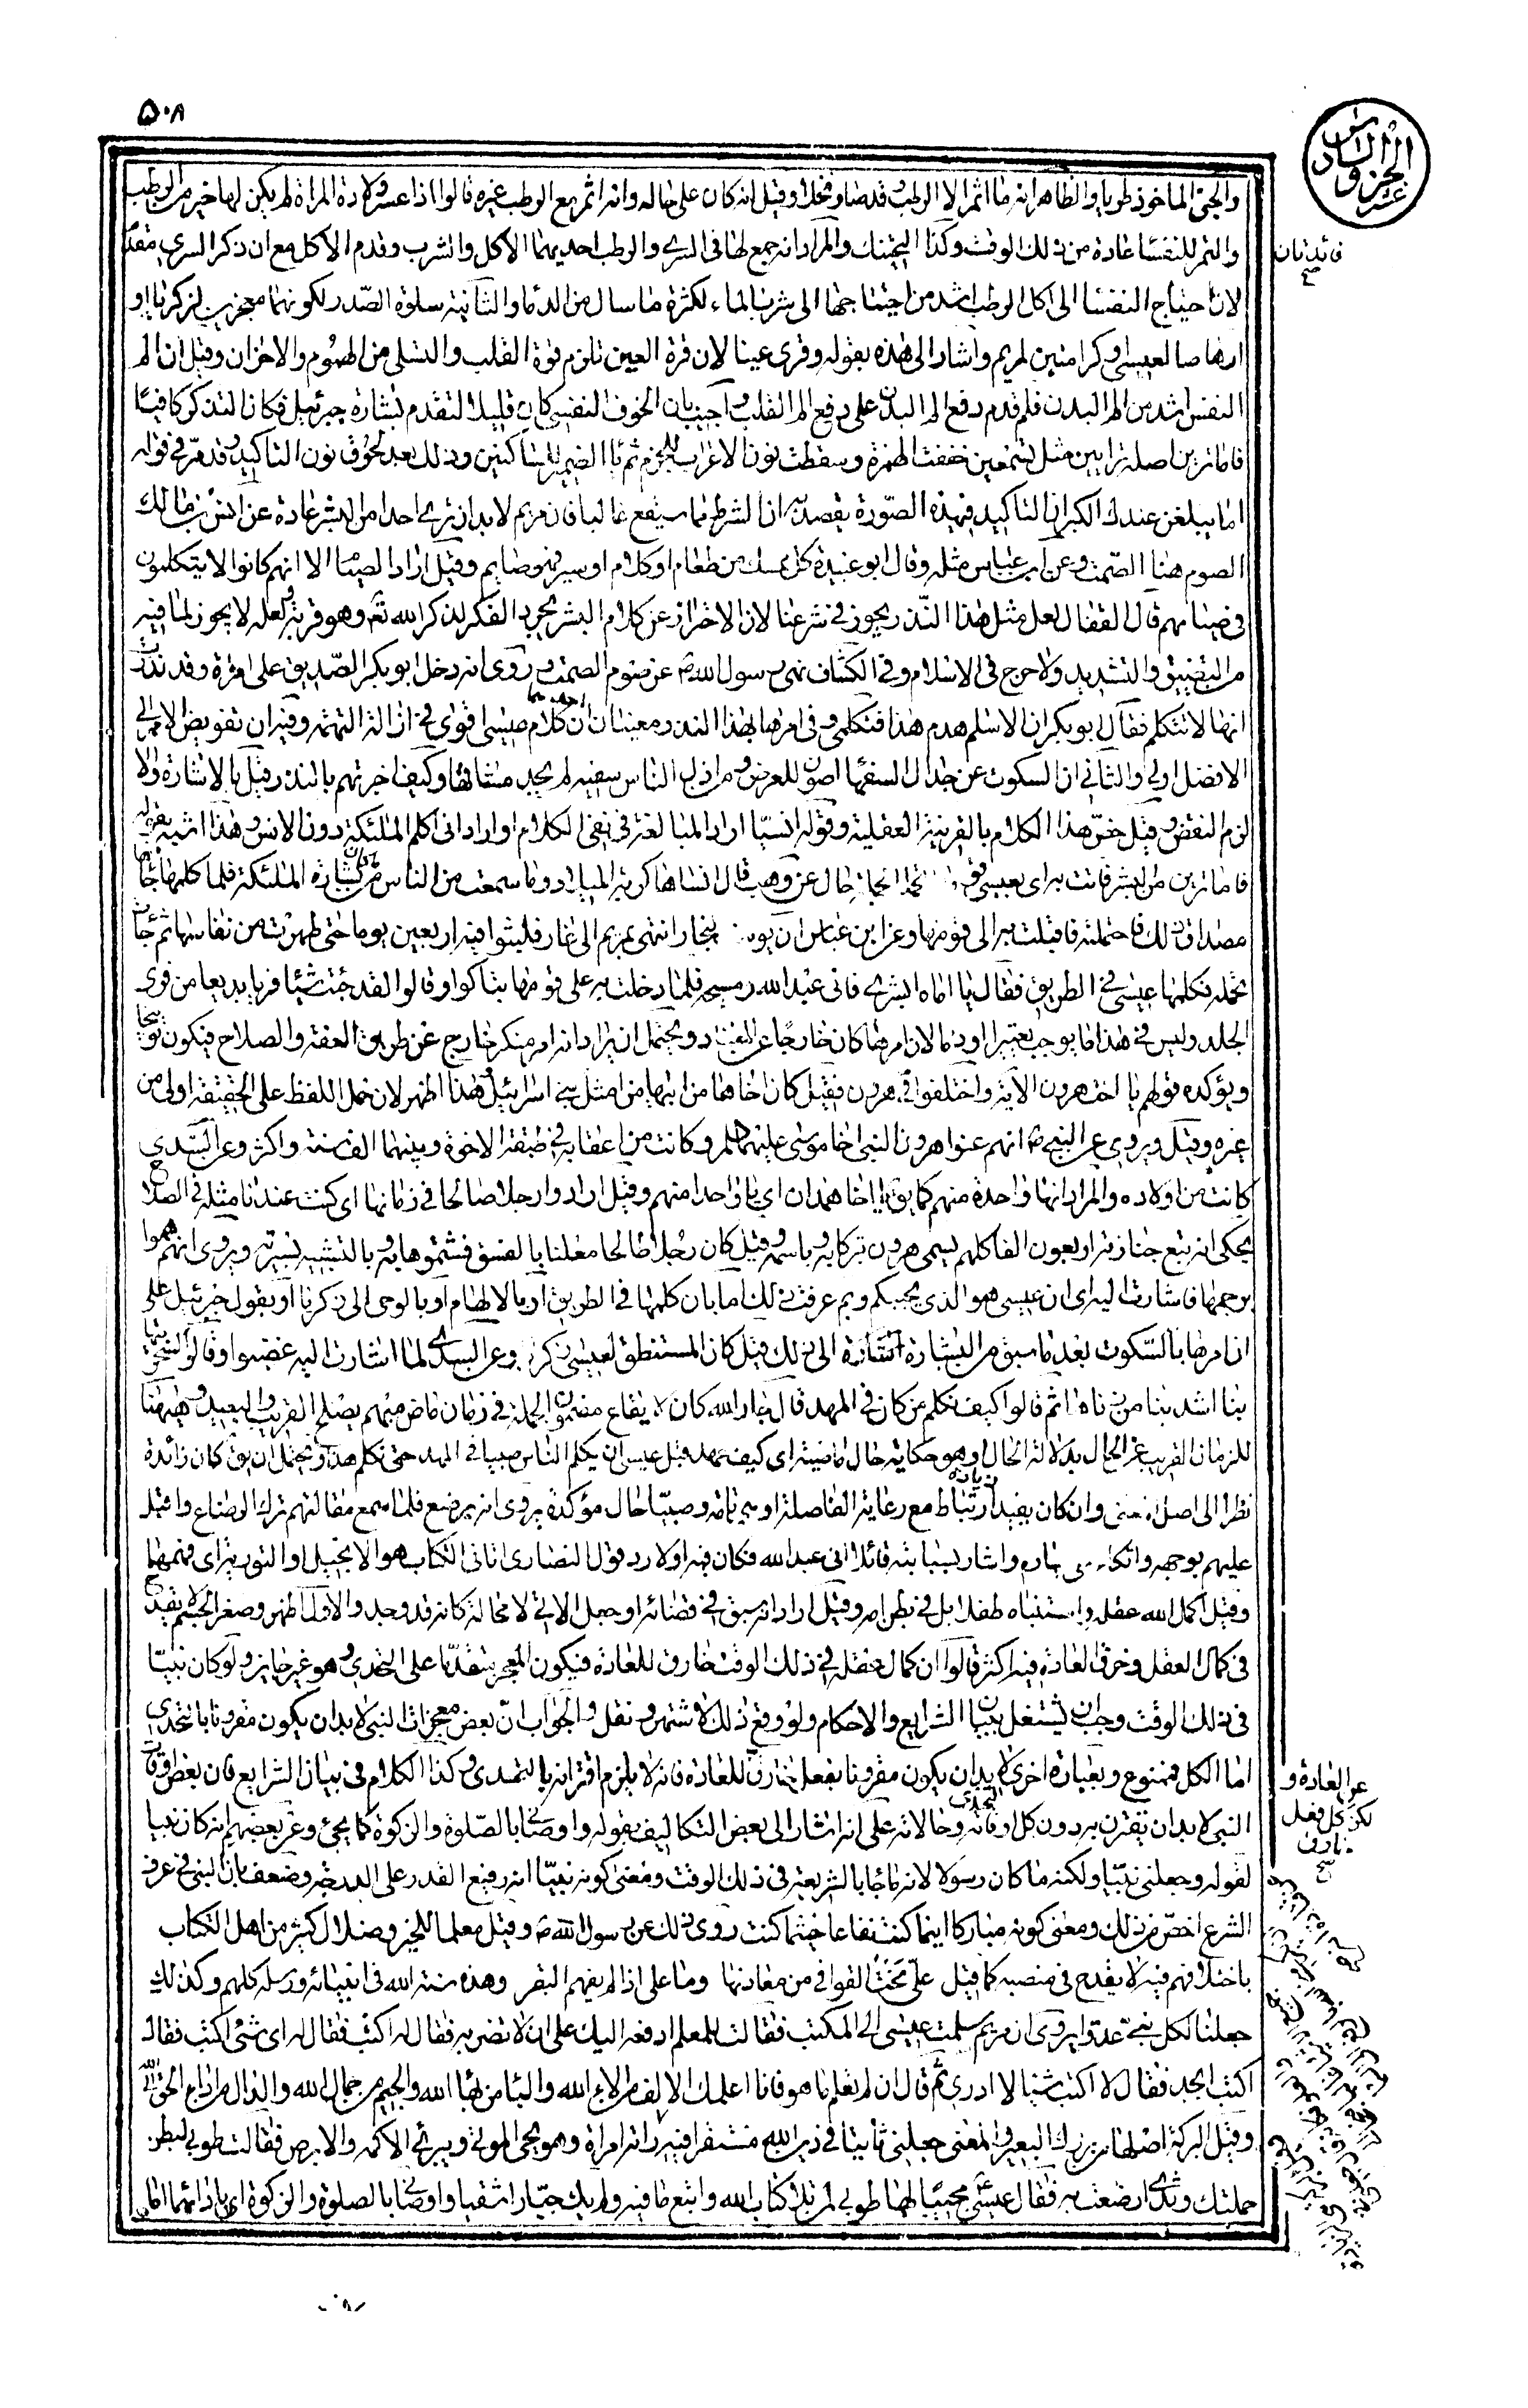 ٥٠٨
الجزو السادس عشر
والجني المأخوذ طريا والظاهر انه ما اثمر الا الرطب وقد صار نخلا وقيل انه كان على حاله وانه اثمر مع الرطب غيره قالوا اذا عسر ولادة المراة لم يكن لها خير من الرطب
والتمر للنفساء عادة من ذلك الوقت وكذا التحنيك والمراد انه جمع لها فى السرى والرطب احديهما الاكل والشرب وقدم الاكل مع ان ذكر السرى مقدم
فائدتان صح
لان احتياج النفساء الى اكل الرطب اشد من احتياجها الى شرب الماء لكثرة ما سال من الدماء والثانية سلوة الصدر لكونهما معجزتين لزكريا او
ارهاصا لعيسى وكرامتين لمريم واشار الى هذه بقوله وقرى عينا لان قرة العين تلزم قوة القلب والتسلى من الهموم والاحزان وقيل ان الم
النفس اشد من الم البدن فلم قدم دفع الم البدن على دفع الم القلب واجيب بان الخوف النفسى كان قليلا لتقدم بشارة جبرئيل فكان التذكر كافيا
فاما ترين اصله ترايين مثل تسمعين خففت الهمزة وسقطت نون الاعراب للجزم ثم ياء الضمير للساكنين وذلك بعد لحوق نون التاكيد وقد مر في قوله
اما يبلغن عندك الكبر ان التاكيد فى هذه الصورة يقصد به ان الشرط مما سيقع غالبا فان مريم لابد ان ترى احدا من البشر عادة عن انس بن مالك
الصوم هنا الصمت وعن ابن عباس مثله وقال ابو عبيدة كل ممسك من طعام او كلام او سير فهو صايم وقيل اراد الصيام الا انهم كانوا لا يتكلمون
فى صيامهم قال القفال لعل مثل هذا النذر يجوز فى شرعنا لان الاحتراز عن كلام البشر يجرد الفكر لذكر الله تعـ وهو قربة ولعله لا يجوز لما فيه
من التضييق والتشديد ولا حرج فى الاسلام وفى الكشاف نهى رسول الله ص عن صوم الصمت وروى انه دخل ابو بكر الصديق على امرة وقد نذرت
انها لا تتكلم فقال ابو بكر ان الاسلام هدم هذا فتكلمى وفى امرها بهذا النذر معنيان احدهما ان كلام عيسى اقوى فى ازالة التهمة وفيه ان تفويض الامر الى
الافضل اولى والثانى ان السكوت عن جدال السفهاء اصون للعرض ومن اذل الناس سفيه لم يجد مسافها وكيف اخبرتهم بالنذر قيل بالاشارة والا
لزم النقض وقيل خص هذا الكلام بالقرينة العقلية وقوله انسيا اراد المبالغة فى نفى الكلام او اراد انى اكلم الملئكة دون الانس وهذا اشبه بقوله
فاما ترين من البشر فاتت به اى بعيسى قومها تحمله الجملة حال عن وهب قال انساها كربة الميلاد وما سمعت من الناس ما كان من بشارة الملئكة فلما كلمها جاءها
مصداق ذلك فاحتملته فاقبلت به الى قومها وعن ابن عباس ان يوسف النجار انتهى بمريم الى غار فلبثوا فيه اربعين يوما حتى طهرت من نفاسها ثم جاءت
تحمله فكلمها عيسى فى الطريق فقال يا اماه ابشرى فانى عبد الله ومسيحه فلما دخلت به على قومها تباكوا وقالوا لقد جئت شيئا فريا بديعا من فرى
الجلد وليس فى هذا ما يوجب تعييرا او ذما لان امرها كان خارجا عن المعتاد ويحتمل ان يراد انه امر منكر خارج عن طريق العفة والصلاح فيكون توبيخا
ويؤكده قولهم يا اخت هرون الآية واختلفوا فى هرون فقيل كان اخا لها من ابيها من امثل بنى اسرائيل وهذا اظهر لان حمل اللفظ على الحقيقة اولى من
غيره وقيل ويروى عن النبى ص انهم عنوا هرون النبى اخا موسى عليهما السلم وكانت من اعقابه فى طبقة الاخوة وبينهما الف سنة واكثر وعن السدى
كانت من اولاده والمراد انها واحدة منهم كما يقـ يا اخا همدان اى يا واحدا منهم وقيل ارادوا رجلا صالحا فى زمانها اى كنت عندنا مثله فى الصلاح
يحكى انه تبع جنازته اربعون الفا كلهم يسمى هرون تبركا به وباسمه وقيل كان رجلا طالحا معلنا بالفسق فشتموها به وبالتشبيه بسيرته ويروى انهم هموا
برجمها فاشارت اليه اى ان عيسى هو الذى يجيبكم وبم عرفت ذلك اما بان كلمها فى الطريق او بالالهام او بالوحى الى زكريا او بقول جبرئيل على
ان امرها بالسكوت بعد ما سبق من البشارة اشارة الى ذلك قيل كان المستنطق لعيسى زكريا وعن السدى لما اشارت اليه غضبوا وقالوا لسخريتها
بنا اشد علينا من زناها ثم قالوا كيف نكلم من كان فى المهد قال جار الله كان لايقاع مضمون الجملة فى زمان ماض مبهم يصلح للقريب والبعيد وههنا
للزمان القريب عن الحال بدلالة الحال او هو حكاية حال ماضية اى كيف عهد قبل عيسى ان يكلم الناس صبيا فى المهد حتى نكلم هذا ويحتمل ان يقـ كان زائدة
نظرا الى اصل المعنى وان كان يفيد زيادة ارتباط مع رعاية الفاصلة او هى تامة وصبيا حال مؤكدة يروى انه يرضع فلما سمع مقالتهم ترك الرضاع واقبل
عليهم بوجهه واتكا على يساره واشار بسبابته قائلا انى عبد الله فكان فيه اولا رد قول النصارى اتانى الكتاب هو الانجيل او التورية اى فهمها
وقيل اكمل الله عقله واستنباه طفلا بل فى بطن امه وقيل اراد انه سبق فى قضائه او جعل الآتى لا محالة كانه قد وجد والاول اظهر وصغر الجثة لا يقدح
فى كمال العقل وخرق العادة فيه اكثر قالوا ان كمال عقله فى ذلك الوقت خارق للعادة فيكون المعجز متقدما على التحدى وهو غير جايز ولو كان نبيا
فى ذلك الوقت وجب ان يشتغل ببيان الشرايع والاحكام ولو وقع ذلك لاشتهر ونقل والجواب ان بعض معجزات النبى لابد ان يكون مقرونا بالتحدى
اما الكل فممنوع وبعبارة اخرى لابد ان يكون مقرونا بفعل خارق للعادة فانه لا يلزم اقترانه بالتحدى وكذا الكلام فى بيان الشرايع فان بعض اوقات
عن العادة و
لكن كل فعل
خارق
صح
النبى لابد ان يقترن به دون كل اوقاته وحالاته على انه اشار الى بعض التكاليف بقوله واوصانى بالصلوة والزكوة كما يجئ وعن بعضهم انه كان نبيا
لقوله وجعلنى نبيا ولكنه ما كان رسولا لانه ما جاء بالشريعة فى ذلك الوقت ومعنى كونه نبيا انه رفيع القدر على الدرجة وضعف بان النبى فى عرف
الشرع اخص من ذلك ومعنى كونه مباركا اينما كنت نفاعا حيثما كنت روى ذلك عن رسول الله ص وقيل معلما للخير وضلال كثير من اهل الكتاب
باختلافهم فيه لا يقدح فى منصبه كما قيل على نحت القوافى من معادنها وما على اذا لم يفهم البقر وهذه سنة الله فى انبيائه ورسله كلهم وكذلك
جعلنا لكل نبى عدوا يروى ان مريم سلمت عيسى الى المكتب فقالت للمعلم ادفعه اليك على ان لا تضربه فقال له اكتب فقال له اى شئ اكتب فقال
اكتب ابجد فقال لا اكتب شيئا لا ادرى ثم قال ان لم تعلم ما هو فانا اعلمك الالف من آلاء الله والباء من بهاء الله والجيم من جمال الله والدال من اداء الحق الى الله
وقيل البركة اصلها من برك البعير والمعنى جعلنى ثابتا فى دين الله مستقرا فيه راته امراة وهو يحيى الموتى ويبرئ الاكمه والابرص فقالت طوبى لبطن
حملتك وثدى ارضعت به فقال عيسى مجيبا لها طوبى لمن تلا كتاب الله واتبع ما فيه ولم يك جبارا شقيا واوصانى بالصلوة والزكوة اى بادائهما اما